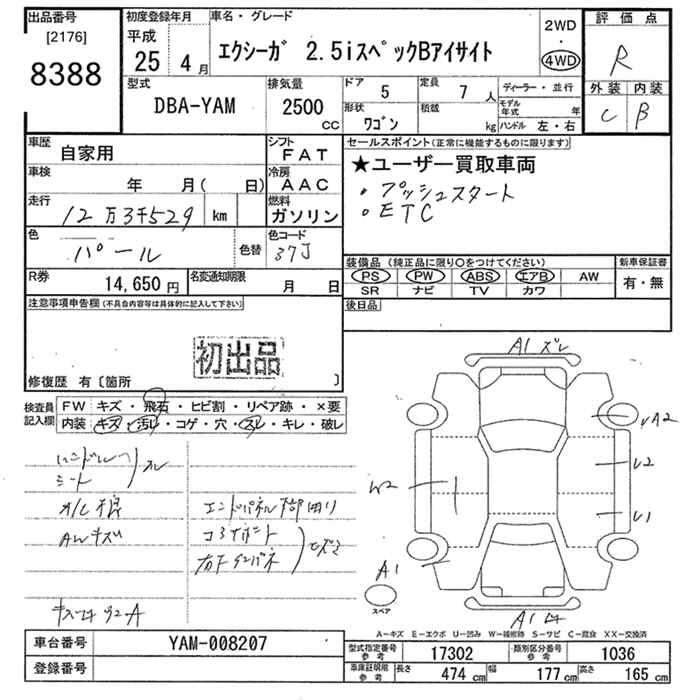 出品番号
[2176]
8388
初度登録年月
平成
25 4月
車名・グレード
エクシーガ 2.5iスペックBアイサイト
2WD
・
4WD
評価点
R
外装 内装
C B
型式
DBA-YAM
排気量
2500
CC
ドア
5
定員
7 人
形状
ワゴン
積載
kg
ディーラー・並行
モデル年式 年
ハンドル 左・右
車歴
自家用
シフト
FAT
車検
年 月( 日)
冷房
AAC
走行
12万3千529 km
燃料
ガソリン
色
パール
色替
色コード
37J
R券
14,650 円
名変通知期限
月 日
セールスポイント(正常に機能するものに限ります)
★ユーザー買取車両
・プッシュスタート
・ETC
装備品(純正品に限り○をつけてください)
PS PW ABS エアB AW
SR ナビ TV カワ
新車保証書
有・無
後日品
注意事項申告欄(不具合内容等は具体的に記入して下さい)
初出品
修復歴 有〔箇所 〕
検査員記入欄
FW キズ・飛石・ヒビ割・リペア跡・×要
内装 キズ・汚れ・コゲ・穴・スレ・キレ・破レ
ハンドル
シート
スレ
AWキズ
エンドパネル
コアサポート
A1 ズレ
UA2
U2
U1
W2
A1
スペア
A－キズ E－エクボ U－凹み W－補修跡 S－サビ C－腐食 XX－交換済
車台番号
YAM-008207
登録番号
型式指定番号 参考
17302
類別区分番号 参考
1036
車庫証明用 参考
長さ 474 cm
幅 177 cm
高さ 165 cm